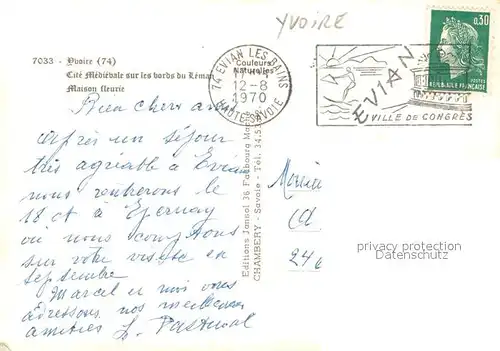 YVOIRE
7033 - Yvoire (74)
Cité Médiévale sur les bords du Léman
Maison fleurie
Couleurs
Naturelles
74 EVIAN LES BAINS
12-8
1970
HAUTE-SAVOIE
EVIAN
VILLE DE CONGRÈS
0,30
POSTES
REPUBLIQUE FRANÇAISE
Bien chers amis
Après un séjour
très agréable à Evian
nous rentrerons le
18 ct à Epernay
où nous comptons
sur votre visite en
septembre
Marcel et moi vous
adressons nos meilleures
amitiés L. Pasturval
Editions Jansol 36 Faubourg
CHAMBERY - Savoie - Tél. 34.5
privacy protection
Datenschutz